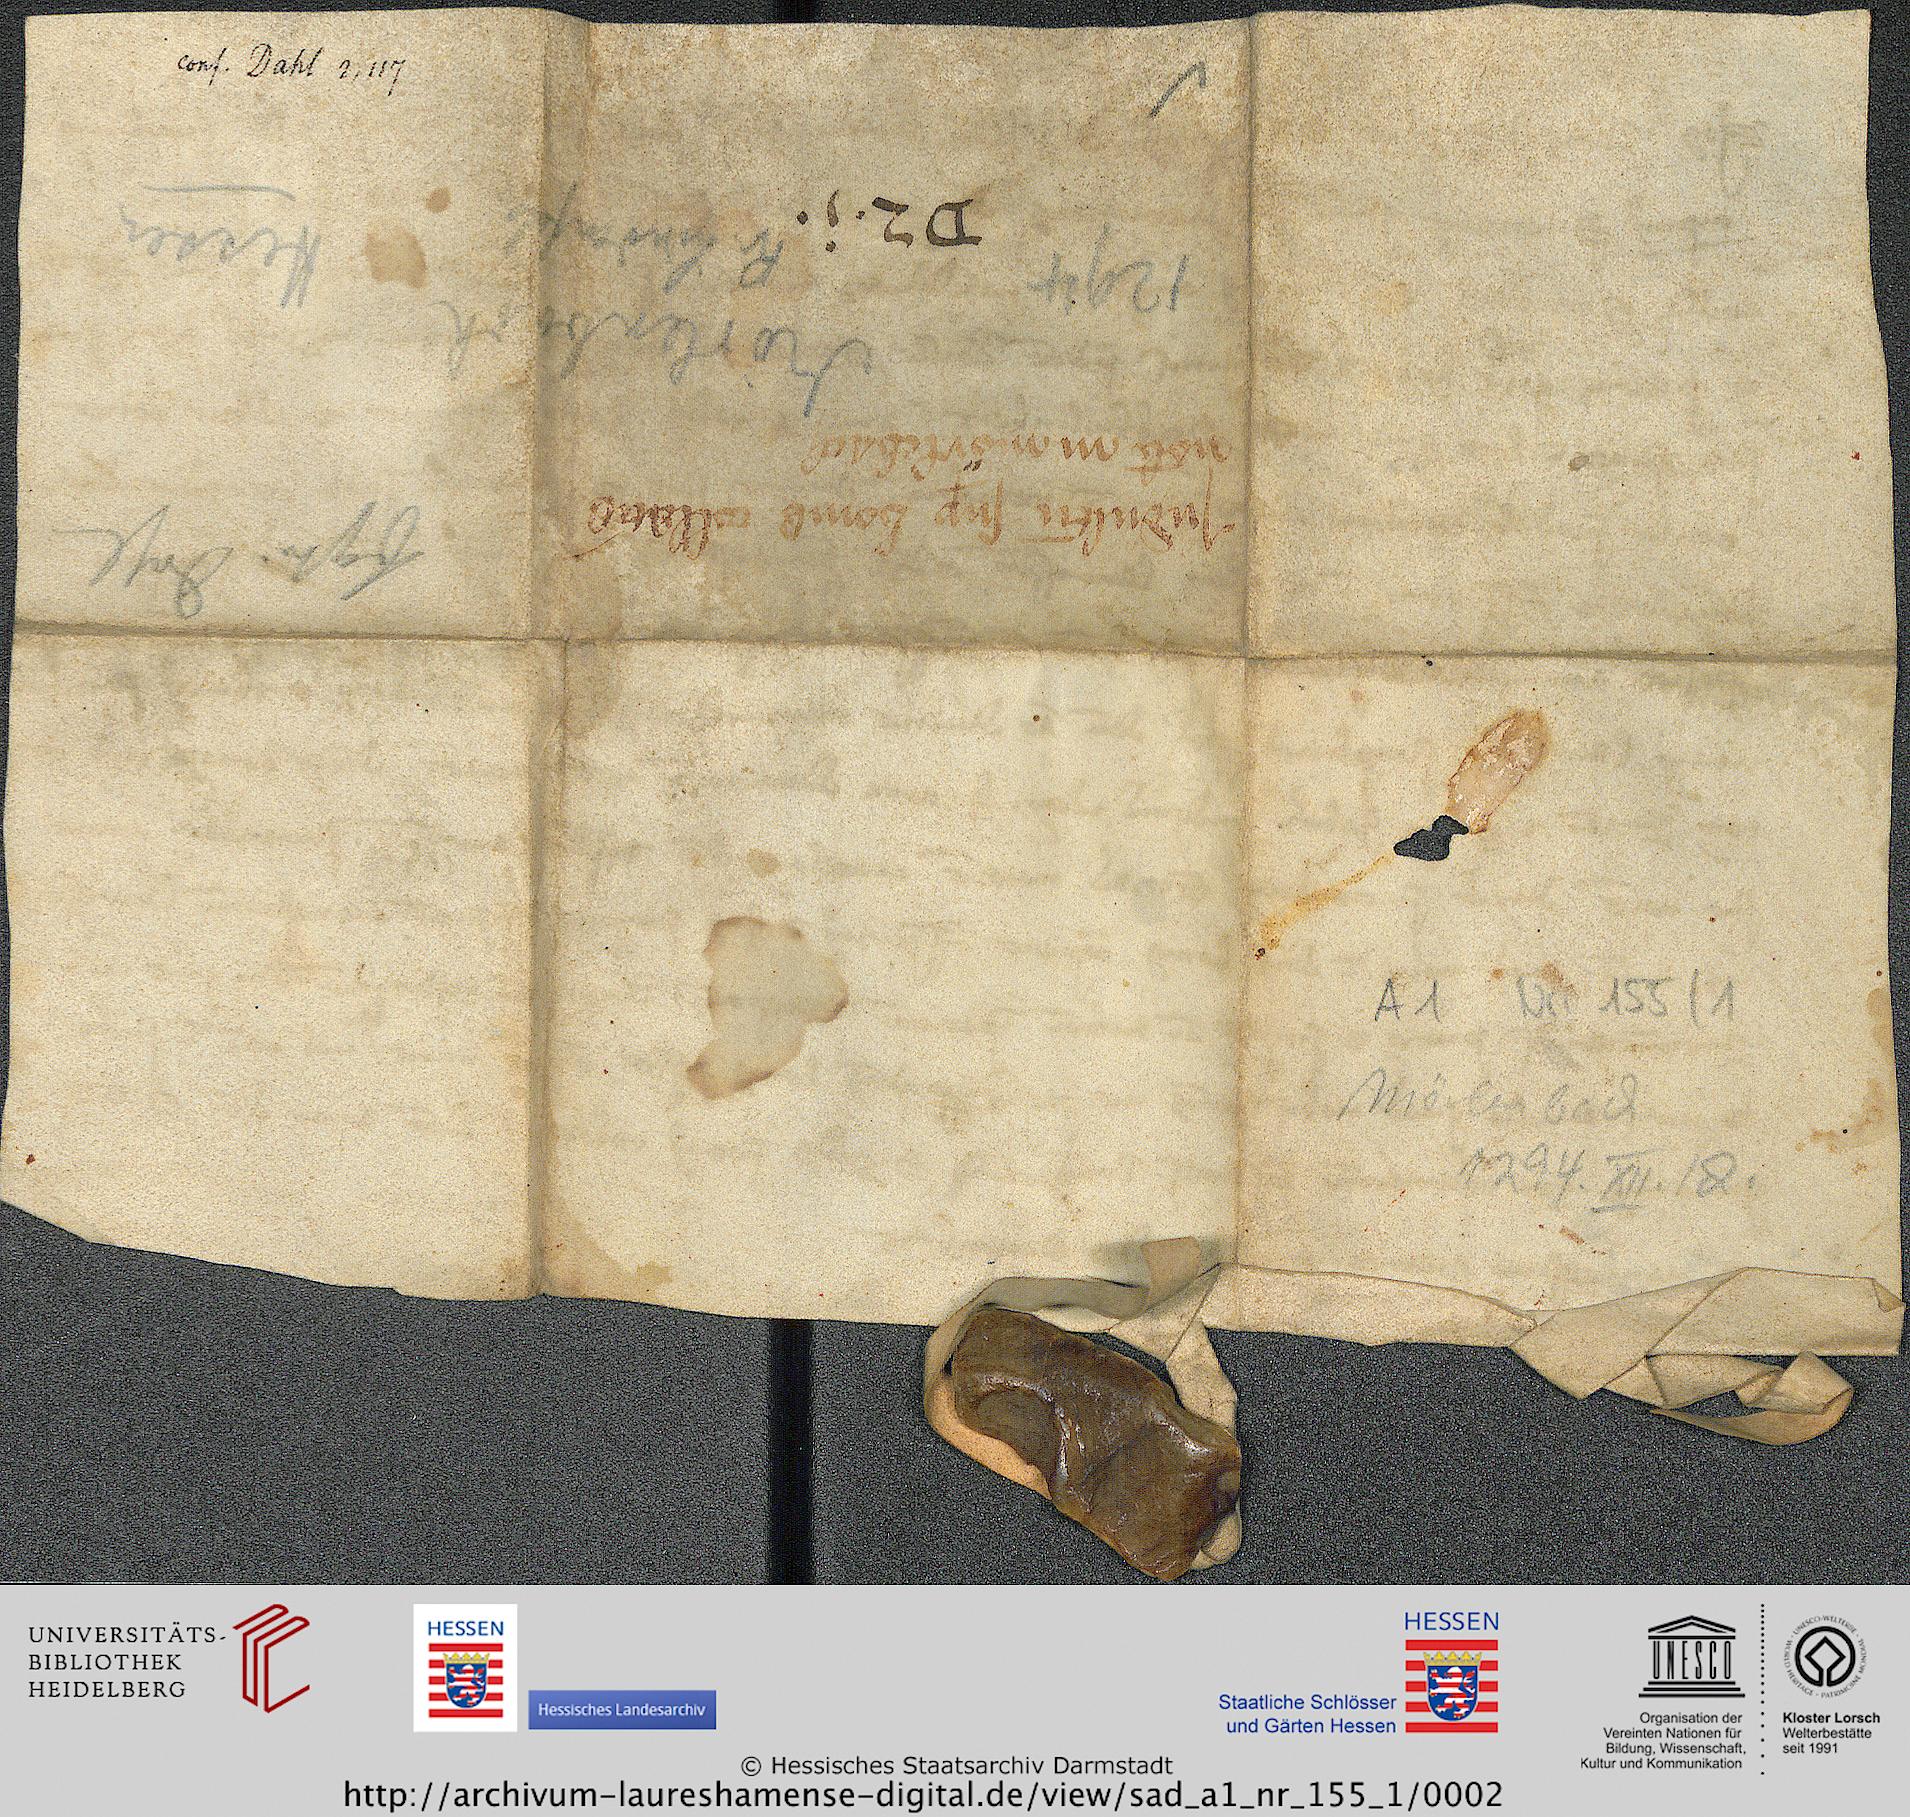 conf. Dahl 2, 117
Hessen
D2.j.
1294
Mörlenbach
sup bonis
in mörlebach
A 1 Nr. 155/1
Mörlenbach
1294. XII. 18.
UNIVERSITÄTS-
BIBLIOTHEK
HEIDELBERG
HESSEN
Hessisches Landesarchiv
HESSEN
Staatliche Schlösser
und Gärten Hessen
UNESCO
Organisation der
Vereinten Nationen für
Bildung, Wissenschaft,
Kultur und Kommunikation
WORLD HERITAGE • PATRIMOINE MONDIAL • UNESCO-WELTERBE •
Kloster Lorsch
Welterbestätte
seit 1991
© Hessisches Staatsarchiv Darmstadt
http://archivum-laureshamense-digital.de/view/sad_a1_nr_155_1/0002